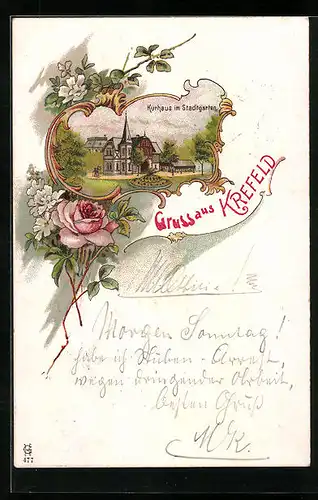 Kurhaus im Stadtgarten.
Gruss aus KREFELD
Morgen Sonntag!
habe ich Stuben-Arrest
wegen dringender Arbeit,
besten Gruß
MK.
477